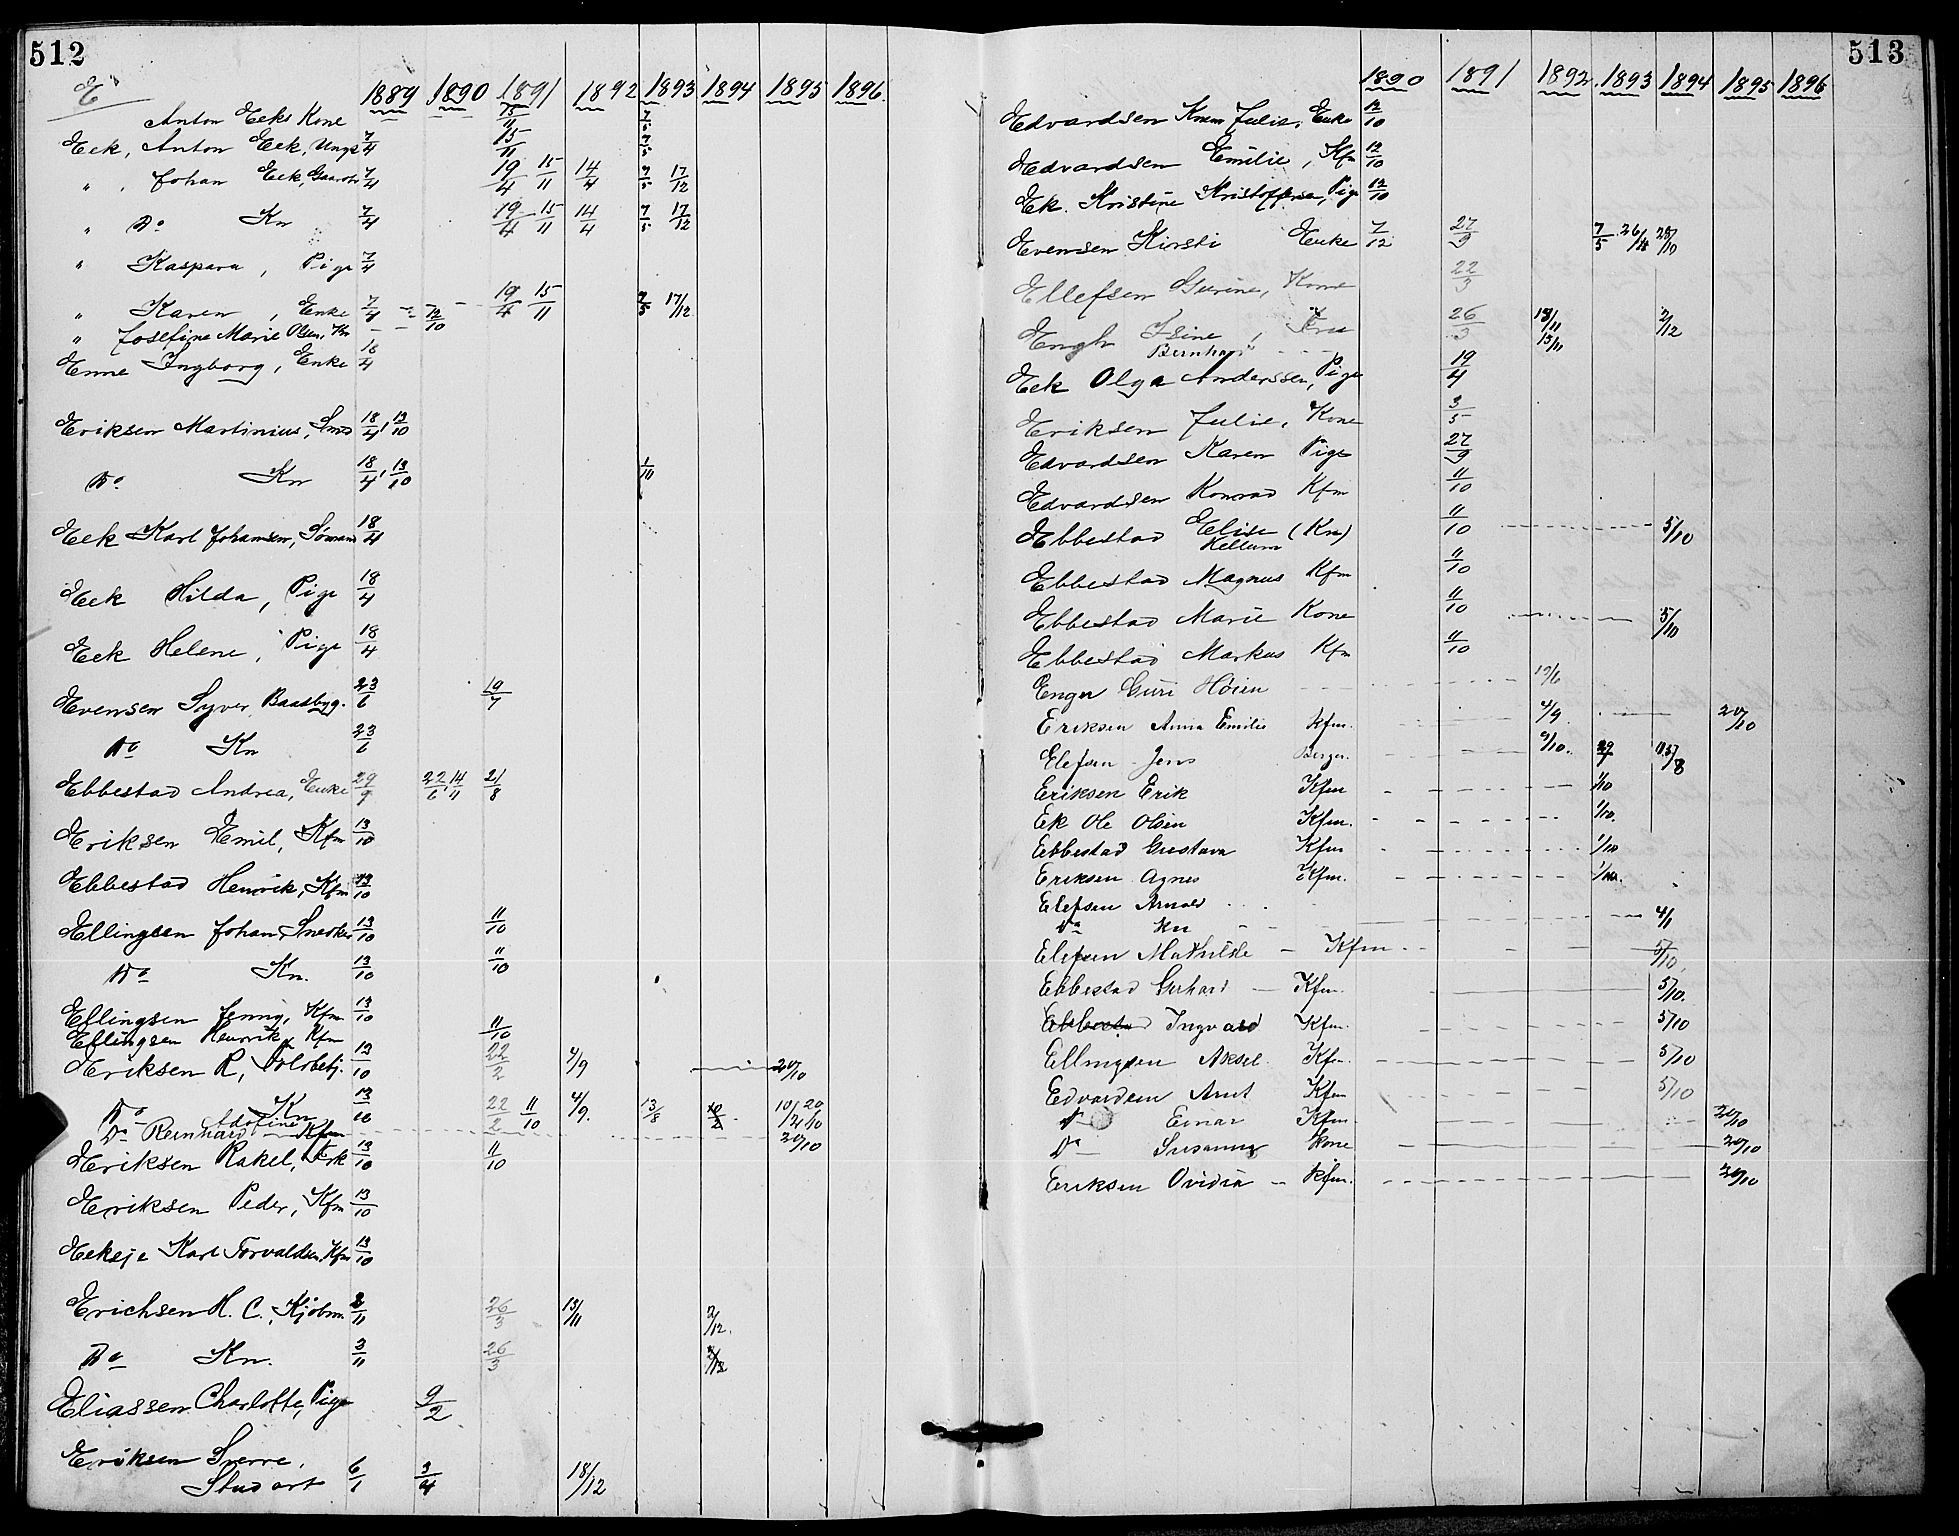 512
E
1889 1890 1891 1892 1893 1894 1895 1896
Anton Eeks Kone 15/11 7/5
Eek, Anton Eek, Ungk 7/4 15/11 7/5
" , Johan Eek, Gaarbr 7/4 19/4 15/11 14/4 7/5 17/12
" Do Kn 7/4 19/4 15/11 14/4 7/5 17/12
" Kaspara, Pige 7/4
" Karen, Enke 7/4 12/10 19/4 15/11 7/5 17/12
" Josefine Marie Olsen, Kn
Enne Ingborg, Enke 18/4
Eriksen Martinius, Smed 18/4, 13/10
Do Kn 18/4, 13/10 1/10
Eek Karl Johansen, Sömand 18/4
Eek Hilda, Pige 18/4
Eek Helene, Pige 18/4
Evensen Syver, Baadbyg. 23/6 19/7
Do Kn 23/6
Ebbestad Andrea, Enke 29/9 22/6 14/11 21/8
Eriksen Emil, Kfm 13/10
Ebbestad Henrik, Kfm 13/10
Ellingsen Johan, Snedker 13/10 11/10
Do Kn. 13/10 11/10
Ellingsen Jenny, Kfm 13/10
Ellingsen Henrik, Kfm 11/10
Eriksen R, Toldbetj. 13/10 22/2 4/9 20/10
Do Kn 13/10 22/2 11/10 4/9. 13/8 10/2 10/12 20/10
Adofine
Do Reinhard Kfm 20/10
Eriksen Rakel, Frk 13/10 11/10
Eriksen Peder, Kfm 13/10
Eekeje Karl Torvaldsen, Kfm 13/10
Erichsen H. C., Kjöbm. 3/11 26/3 13/11 2/12.
Do Kn. 3/11 26/3 2/12
Eliassen Charlotte, Pige 9/2
Eriksen Sverre,
Stud art 6/1 3/4 18/12
513
1890 1891 1892 1893 1894 1895 1896
Edvardsen Karen Julie, Enke 12/10
Edvardsen Emilie, Kfm 12/10
Ek. Kristine Kristoffersen, Pige 12/10
Evensen Kirsti Enke 7/12 27/9 7/5 26/11 25/10
Ellefsen Gurine, Kone 22/3
Engh Isine, Fru 26/3 13/11 2/12
Bernhard 13/11
Eek Olga Anderssen, Pige 19/4
Eriksen Julie, Kone 3/5
Edvardsen Karen Pige 27/9
Edvardsen Konrad Kfm 11/10
Ebbestad Elise (Kn) 11/10 5/10
Kellum
Ebbestad Magnus Kfm 11/10
Ebbestad Marie Kone 11/10 5/10
Ebbestad Markus Kfm 11/10
Enger Guri Höien 19/6
Eriksen Anna Emilie Kfm. 4/9 20/10
Elefsen Jens 9/10. 29/7
Eriksen Erik Kfm 1/10
Ek Ole Olsen Kfm. 1/10.
Ebbestad Gustava Kfm 1/10
Eriksen Agnes Kfm. 1/10.
Elefsen Arnold
Do Kn 4/1
Elefsen Mathilde Kfm 5/10.
Ebbestad Gerhard Kfm. 5/10.
Ebbestad Ingvald Kfm. 5/10
Ellingsen Aksel Kfm. 5/10
Edvardsen Arnt Kfm 5/10
Do Einar Kfm 20/10
Do Susanna Kone 20/10
Eriksen Ovidia Kfm. 20/10